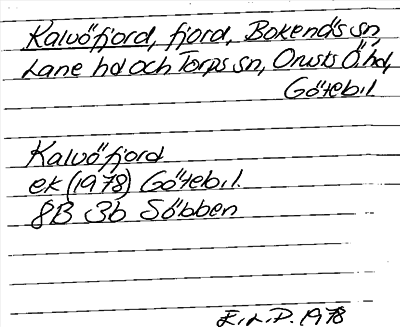 Kalvöfjord, fjord, Bokenäs sn,
Lane hd och Torps sn, Orusts Ö hd,
Götеb.l.
Kalvöfjord
ek (1978) Göteb.l.
8B 3b Söbben
E.L.P. 1978